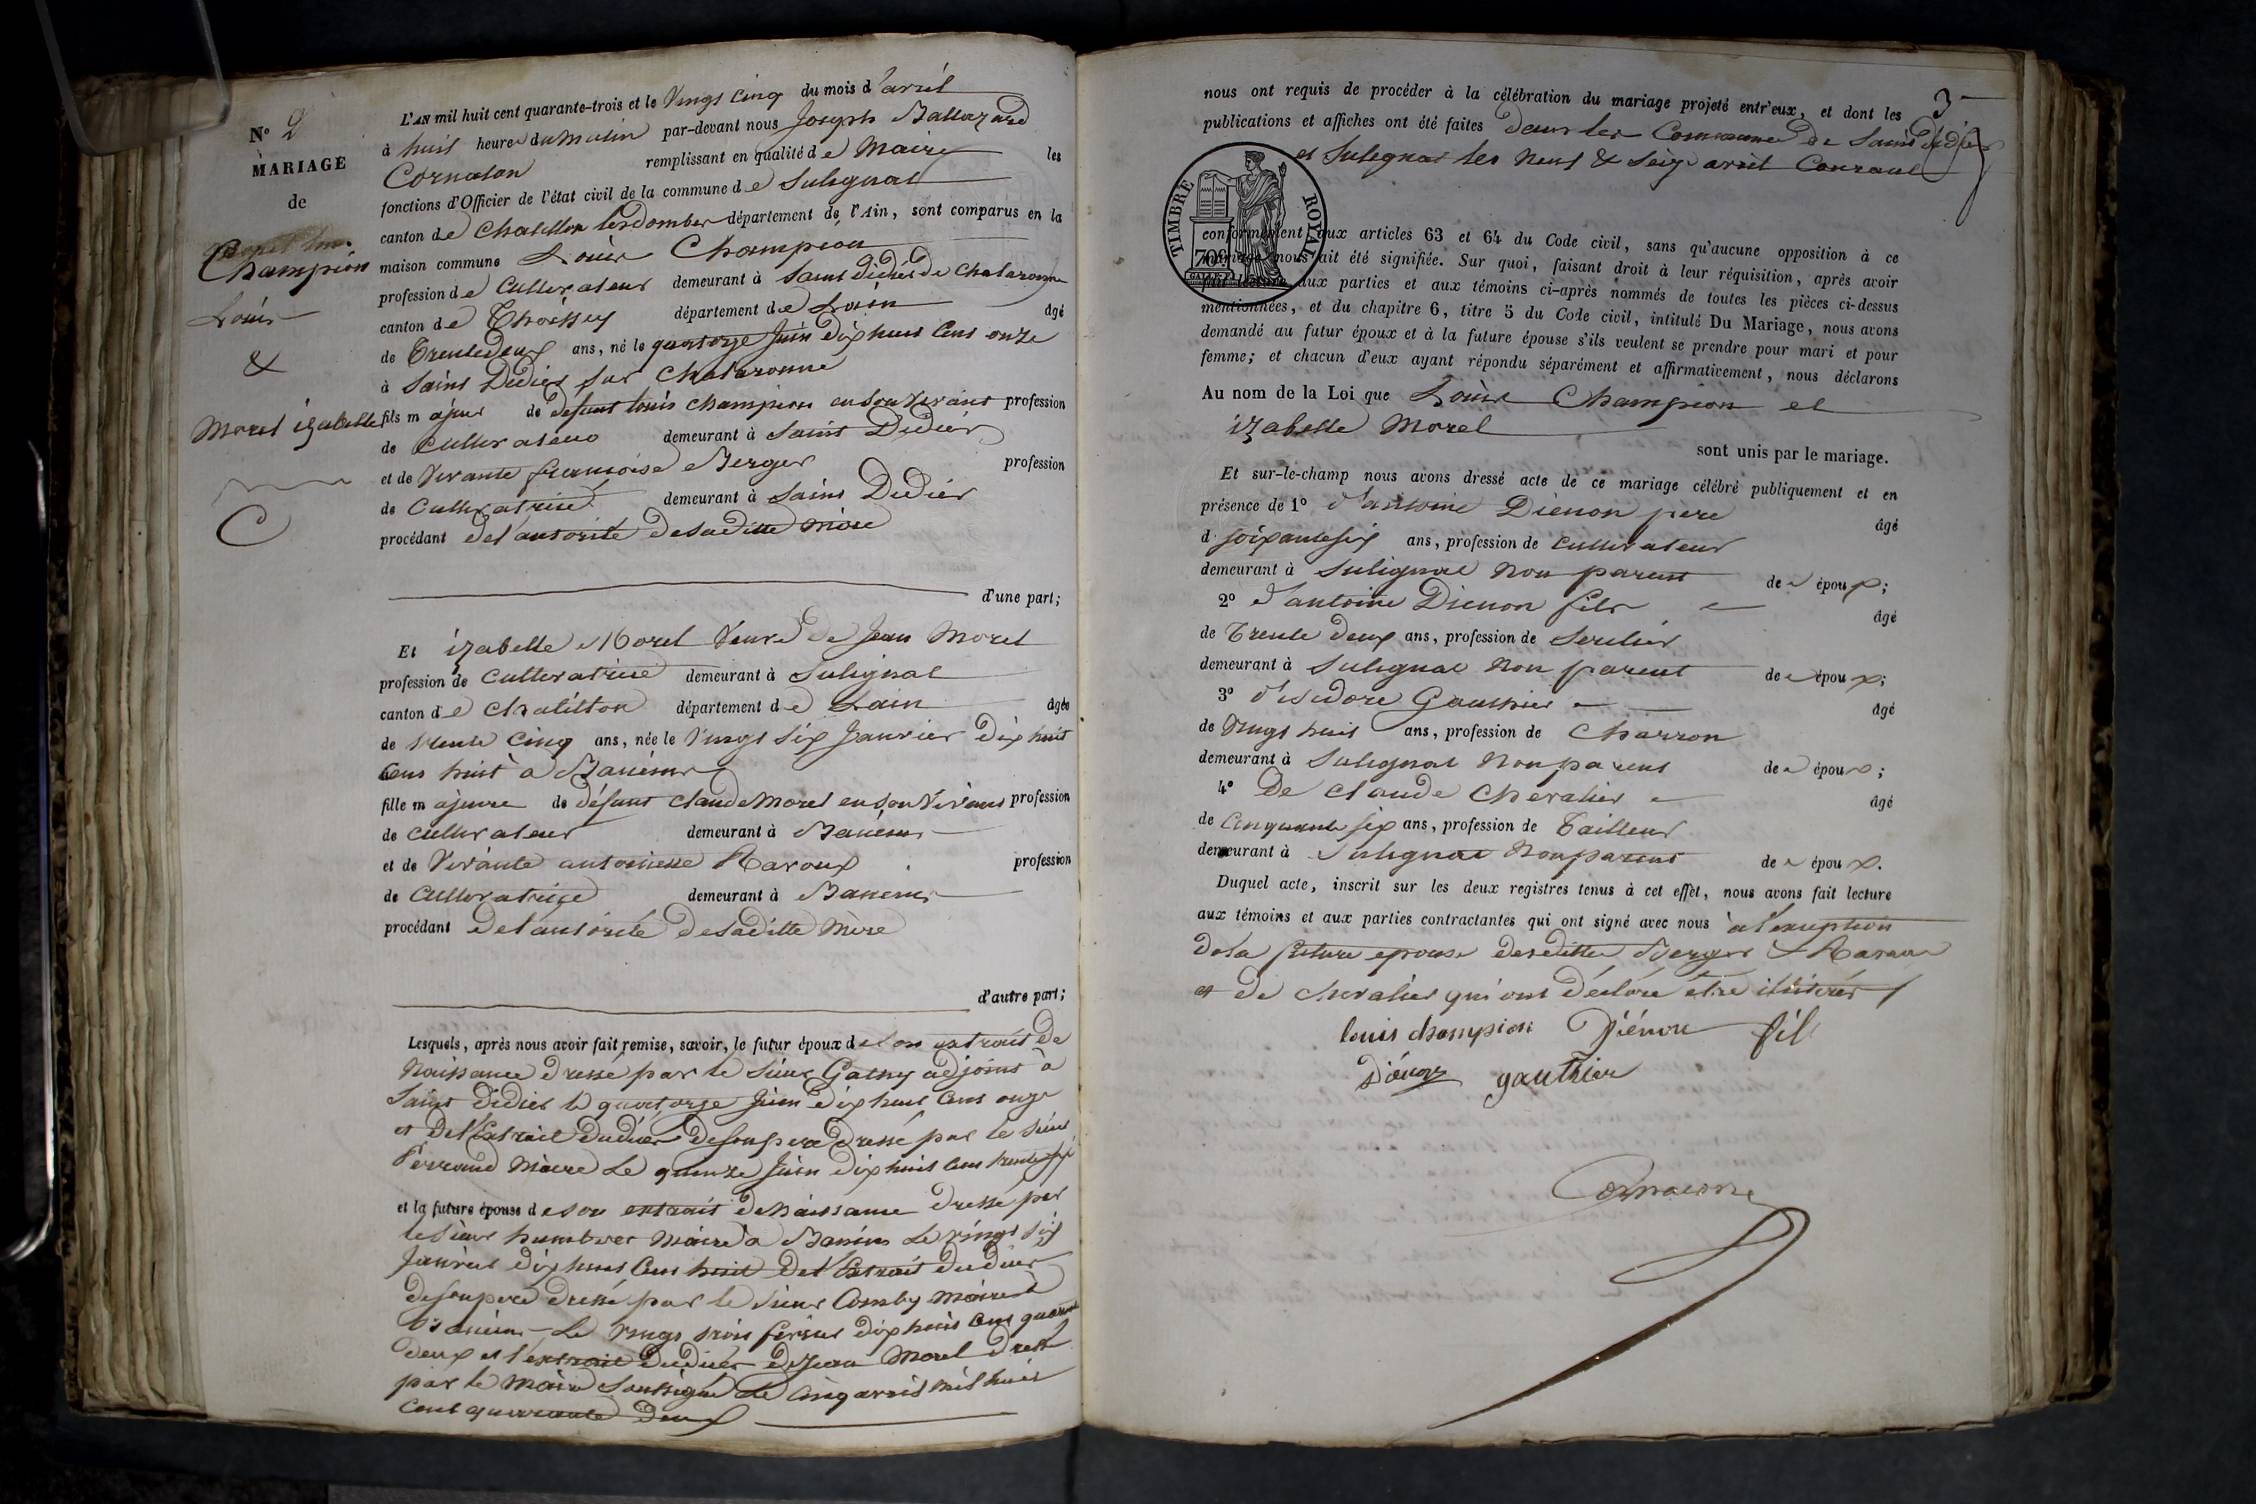 N° 2
MARIAGE
de
Champion
Louis
&
Morel izabelle
L'AN mil huit cent quarante-trois et le Vingt Cinq du mois d'avril
à huit heure du Matin par-devant nous Joseph Baltazard
Cornaton remplissant en qualité de Maire les
fonctions d'Officier de l'état civil de la commune de Sulignat
canton de Chatillon les dombes département de l'Ain, sont comparus en la
maison commune Louis Champion
profession de Cultivateur demeurant à Saint Didier de Chalaronne
canton de Thoissey département de Lain âgé
de Trente deux ans, né le quatorze Juin dix huit Cent onze
à Saint Didier sur Chalaronne
fils majeur de défunt louis Champion en son vivant profession
de Cultivateur demeurant à Saint Didier
et de Vivante francoise Berger profession
de Cultivatrice demeurant à Saint Didier
procédant de l'autorité de sa ditte Mère
d'une part;
Et izabelle Morel Veuve de Jean Morel
profession de Cultivatrice demeurant à Sulignat
canton de Chatillon département de Lain âgée
de trente Cinq ans, née le Vingt Six Janvier Dix huit
Cent huit à Baneins
fille majeure de défunt Claude Morel en son Vivant profession
de Cultivateur demeurant à Baneins
et de Vivante antoinette Ravoux profession
de Cultivatrice demeurant à Baneins
procédant de l'autorité de sa ditte Mère
d'autre part;
Lesquels, après nous avoir fait remise, savoir, le futur époux de Son extrait de
Naissance dressé par le Sieur Gathy adjoint à
Saint didier le quatorze Juin dix huit Cent onze
et de l'Extrait du décès de son père dressé par le Sieur
Perraud Maire Le quinze Juin dix huit Cent trente six
et la future épouse de son extrait de Naissance dressé par
le Sieur humbert Maire à Baneins Le vingt six
Janvier dix huit Cent huit de l'Extrait du décès
de son père dressé par le Sieur Comby Maire à
Baneins Le Vingt trois fevrier dix huit Cent quarante
deux et l'extrait du décès de Jean Morel dressé
par le Maire Soussigné Le Cinq avril mil huit
Cent quarante deux
3
nous ont requis de procéder à la célébration du mariage projeté entr'eux, et dont les
publications et affiches ont été faites dans les Commune de Saint didier
et Sulignat les Neuf & Seize avril Courant
TIMBRE ROYAL
70c
conformément aux articles 63 et 64 du Code civil, sans qu'aucune opposition à ce
mariage nous ait été signifiée. Sur quoi, faisant droit à leur réquisition, après avoir
fait lecture aux parties et aux témoins ci-après nommés de toutes les pièces ci-dessus
mentionnées, et du chapitre 6, titre 5 du Code civil, intitulé Du Mariage, nous avons
demandé au futur époux et à la future épouse s'ils veulent se prendre pour mari et pour
femme; et chacun d'eux ayant répondu séparément et affirmativement, nous déclarons
Au nom de la Loi que Louis Champion et
izabelle Morel
sont unis par le mariage.
Et sur-le-champ nous avons dressé acte de ce mariage célébré publiquement et en
présence de 1° d'antoine Diénon père âgé
d soixante six ans, profession de Cultivateur
demeurant à Sulignat Non parent de époux;
2° d'antoine Dienon fils âgé
de Trente deux ans, profession de
demeurant à Sulignat Non parent de époux;
3° d'isidore Gauthier âgé
de Vingt huit ans, profession de Charron
demeurant à Sulignat Non parent de époux;
4° De Claude Chevalier âgé
de Cinquante six ans, profession de Tailleur
demeurant à Sulignat Non parent de époux.
Duquel acte, inscrit sur les deux registres tenus à cet effet, nous avons fait lecture
aux témoins et aux parties contractantes qui ont signé avec nous à l'exeption
de la future epouse des dittes Berger & Ravoux
et de Chevalier qui ont déclaré être ilitérés
louis champion Diénon fils
Diénon gauthier
Cornaton